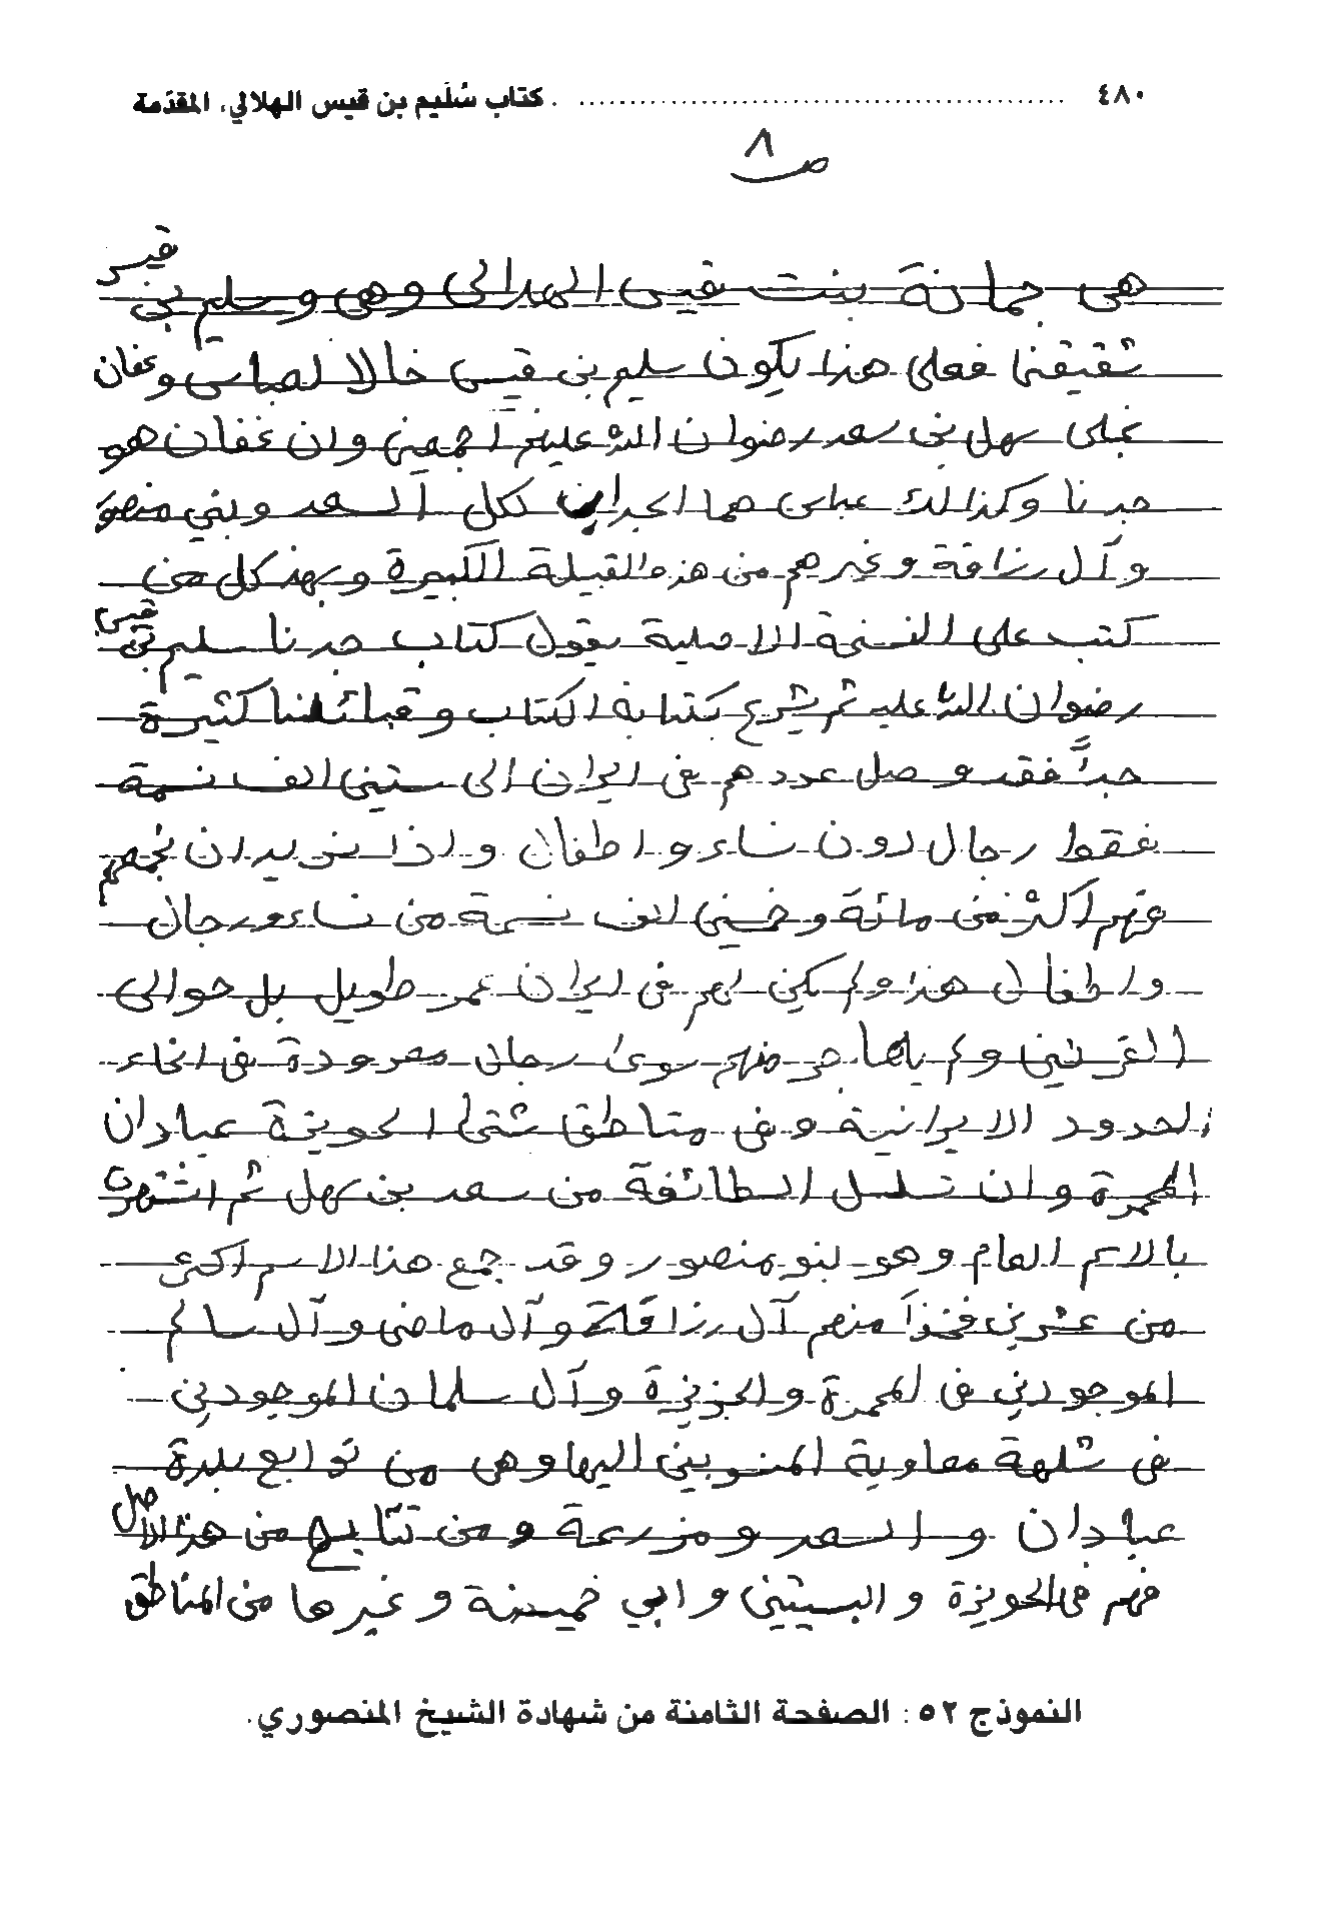 ٤٨٠ ........ كتاب سُلَيم بن قيس الهلالي، المقدّمة
ص ٨
هى جمانة بنت قيس الهلالى وهى وسليم بن قيس
شقيقنا فعلى هذا يكون سليم بن قيس خالا لعباس وغفان
على سهل بن سعد رضوان الله عليهم اجمعين وان غفان هو
جدنا وكذالك عباس هما الجدان لكل آل سعد وبني منصور
وآل رزاقة وغيرهم من هذه القبيلة الكبيرة وبهذ كل من
كتب على النسخة الاصلية يقول كتاب جدنا سليم بن قيس
رضوان الله عليه ثم يشرع بكتابة الكتاب وقبائلنا كثيرة
جداً فقد وصل عددهم فى ايران الى ستين الف نسمة
فقط رجال دون نساء واطفال واذا
اكثر من مائة وخمسين الف نسمة من نساء ورجال
واطفال هذا ولم يكن لهم فى ايران عمر طويل بل حوالى
القرنين ولم يهاجر منهم سوى رجال معدودة فى انحاء
الحدود الايرانية وفى مناطق شتى الحويزة عبادان
المحمرة وان تسلسل الطائفة من سعد بن سهل ثم اشتهرت
بالاسم العام وهو لبنو منصور وقد جمع هذا الاسم اكثر
من عشرين فخذاً منهم آل رزاقة وآل ماضى وآل سالم
الموجودين فى المحمرة والجزيرة وآل سلمان الموجودين
فى شلهة معاوية المنسوبين اليها وهى من توابع بلدة
عبادان وال سعد ومزرعة ومن تتابع من هذا الاصل
فهم فى الحويزة والبسيتين وابي خميضة وغيرها من المناطق
النموذج ٥٢ : الصفحة الثامنة من شهادة الشيخ المنصوري.